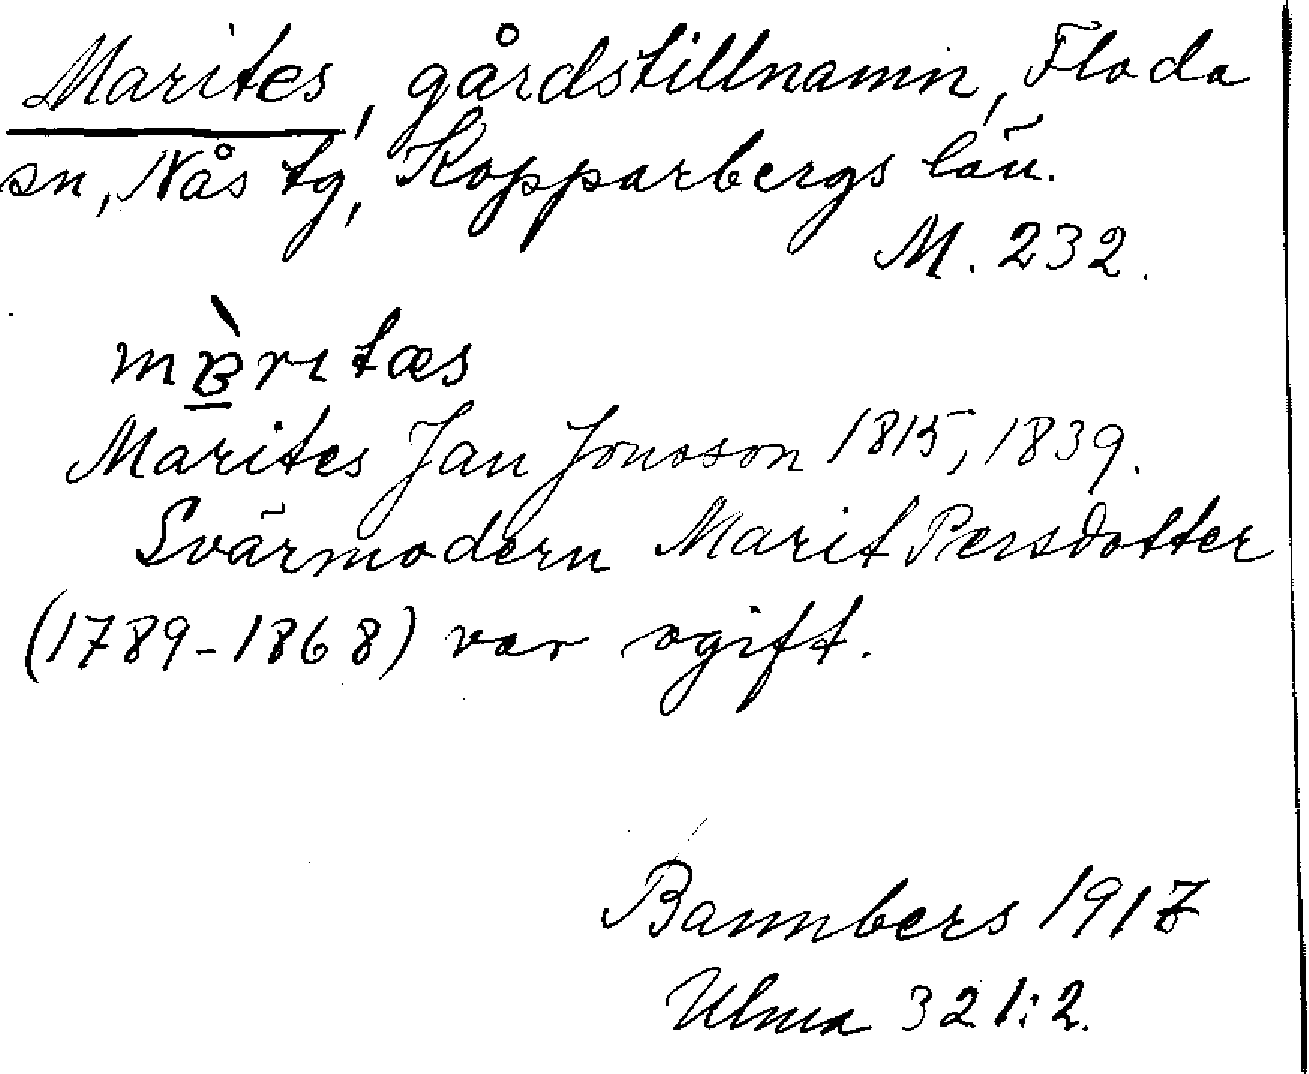 Marites, gårdstillnamn, Floda
sn, Nås tg, Kopparbergs län.
M. 232.
Marites Jan Jonsson 1815, 1839.
Svärmodern Marit Persdotter
(1789-1868) var ogift.
Bannbers 1917
Ulma 321:2.